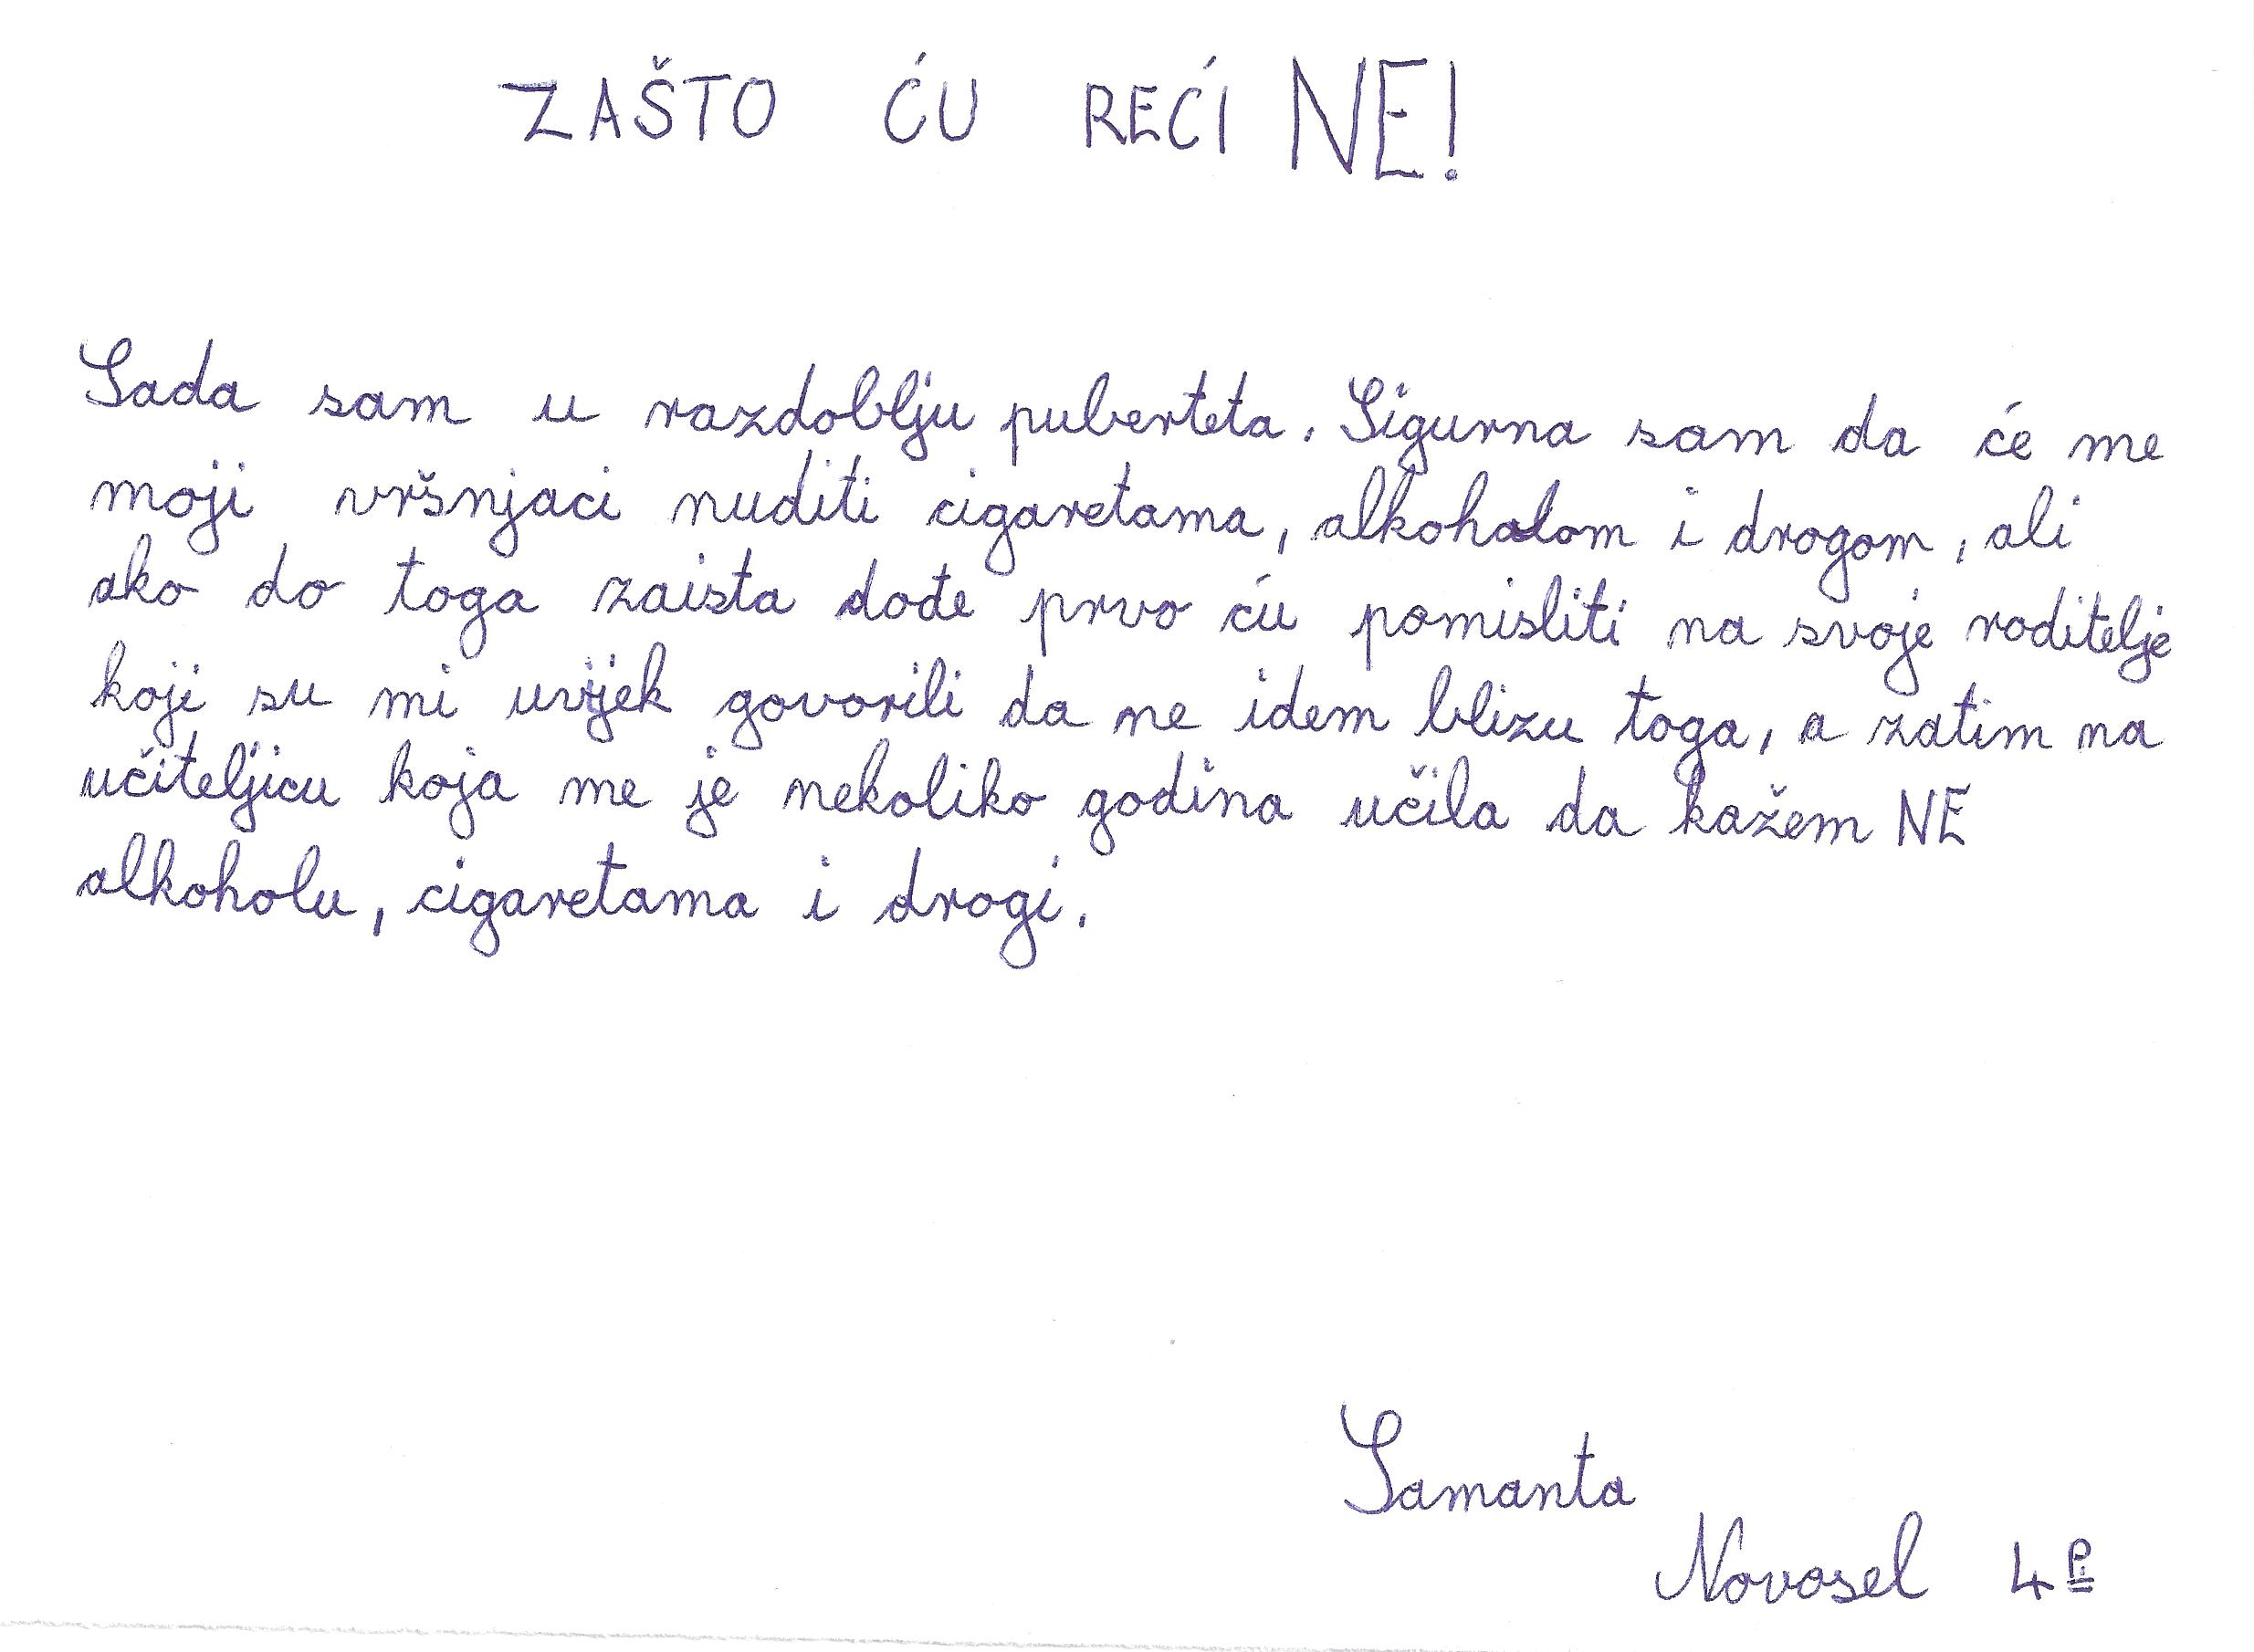 ZAŠTO ĆU REĆI NE!
Sada sam u razdoblju puberteta. Sigurna sam da će me
moji vršnjaci nuditi cigaretama, alkoholom i drogom, ali
ako do toga zaista dođe prvo ću pomisliti na svoje roditelje
koji su mi uvijek govorili da ne idem blizu toga, a zatim na
učiteljicu koja me je nekoliko godina učila da kažem NE
alkoholu, cigaretama i drogi.
Samanta
Novosel 4